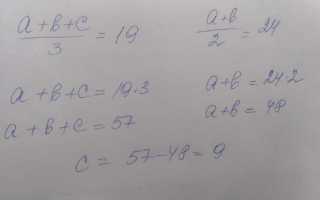 (a+b+c)/3 = 19
(a+b)/2 = 24
a+b+c = 19·3
a+b = 24·2
a+b+c = 57
a+b = 48
c = 57-48 = 9